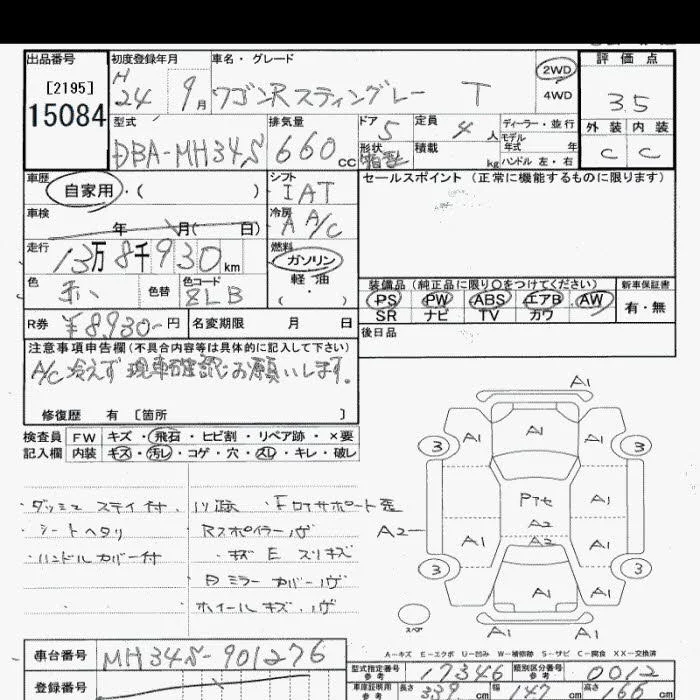 出品番号 初度登録年月 車名・グレード 評価点
[2195] H 24 9月 ワゴンRスティングレー T 2WD 4WD 3.5
15084 型式 排気量 ドア 定員 ディーラー・並行 外装 内装
DBA-MH34S 660cc 5 4人 モデル年式 年 C C
形状 箱型 積載 kg ハンドル 左・右
車歴 シフト セールスポイント (正常に機能するものに限ります)
自家用・( ) IAT
車検 冷房
年 月( 日) A A/C
走行 燃料
13万8千930km ガソリン
色 色替 色コード 軽・油 装備品 (純正品に限り○をつけてください) 新車保証書
赤 ZLB ( ) PS PW ABS エアB AW 有・無
SR ナビ TV カワ
R券 ¥8,930-円 名変期限 月 日 後日品
注意事項申告欄(不具合内容等は具体的に記入して下さい)
A/C冷えず現車確認お願いします。
修復歴 有 [箇所 ]
検査員 FW キズ・飛石・ヒビ割・リペア跡・×要
記入欄 内装 キズ・汚レ・コゲ・穴・スレ・キレ・破レ
・シートヘタリ Rスポイラー
・ハンドルカバー付 ・キズ E スリキズ
ミラーカバー
ホイールキズ
A1
A1 A1 A1
3 3
Pﾅｾ A1
A2 A2
A1 A2 A1
3 3
A1 A1 A1
スペア
A1 A1
A-キズ E-エクボ U-凹み W-補修跡 S-サビ C-腐食 XX-交換済
車台番号 MH34S-901276
型式指定番号 参考 17346 類別区分番号 参考 0012
登録番号 車庫証明用 参考 長さ 339cm 幅 147cm 高さ 166cm